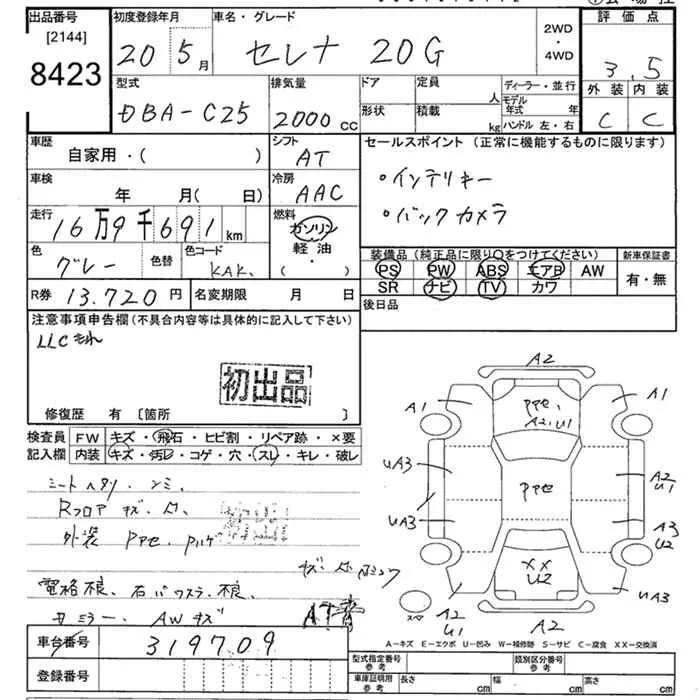 出品番号
[2144]
8423
初度登録年月
20 5月
車名・グレード
セレナ 20G
2WD
・
4WD
評価点
3.5
外装 内装
C C
型式
DBA-C25
排気量
2000cc
ドア
形状
定員
人
積載
kg
ディーラー・並行
モデル年式 年
ハンドル 左・右
車歴
自家用・( )
シフト
AT
セールスポイント (正常に機能するものに限ります)
・インテリキー
・バックカメラ
車検
年 月( 日)
冷房
AAC
走行
16万9千691km
燃料
ガソリン
軽油
( ・ )
色
グレー
色替
色コード
KAK
装備品 (純正品に限り○をつけてください)
PS PW ABS エアB AW
SR ナビ TV カワ
新車保証書
有・無
R券
13.720円
名変期限 月 日
後日品
注意事項申告欄 (不具合内容等は具体的に記入して下さい)
LLCもれ
初出品
修復歴 有 [箇所 ]
検査員記入欄
FW キズ・飛石・ヒビ割・リペア跡・×要
内装 キズ・汚レ・コゲ・穴・スレ・キレ・破レ
シートヘタリ・シミ
Rフロア キズ
外装 PPe
電格 不良
ミラー、AWキズ
A2
A1
A1
PPe
A2.U1
UA3
PPe
A2
U1
UA3
A3
U2
XX
U2
A2
U1
A2
UA3
A－キズ E－エクボ U－凹み W－補修跡 S－サビ C－腐食 XX－交換済
車台番号
319709
登録番号
型式指定番号
参考
類別区分番号
参考
車庫証明用
参考
長さ cm
幅 cm
高さ cm